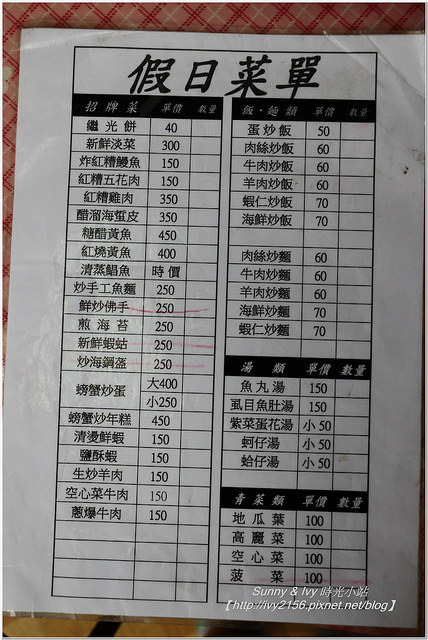 假日菜單
招牌菜 單價 數量
繼光餅 40
新鮮淡菜 300
炸紅糟鰻魚 150
紅糟五花肉 150
紅糟雞肉 350
醋溜海蜇皮 350
糖醋黃魚 450
紅燒黃魚 400
清蒸鯧魚 時價
炒手工魚麵 250
鮮炒佛手 250
煎海苔 250
新鮮蝦蛄 250
炒海鋼盔 250
螃蟹炒蛋 大400
小250
螃蟹炒年糕 450
清燙鮮蝦 150
鹽酥蝦 150
生炒羊肉 150
空心菜牛肉 150
蔥爆牛肉 150
飯、麵類 單價 數量
蛋炒飯 50
肉絲炒飯 60
牛肉炒飯 60
羊肉炒飯 60
蝦仁炒飯 70
海鮮炒飯 70
肉絲炒麵 60
牛肉炒麵 60
羊肉炒麵 60
海鮮炒麵 70
蝦仁炒麵 70
湯類 單價 數量
魚丸湯 150
虱目魚肚湯 150
紫菜蛋花湯 小50
蚵仔湯 小50
蛤仔湯 小50
青菜類 單價 數量
地瓜葉 100
高麗菜 100
空心菜 100
菠菜 100
Sunny & Ivy 時光小站
【http://ivy2156.pixnet.net/blog】